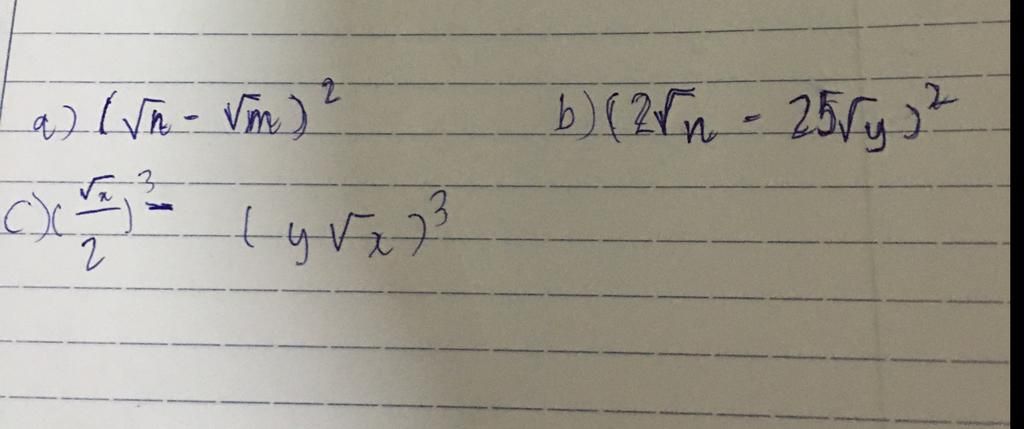 a) (√n - √m)² b) (2√n - 25√y)²
c) (√x/2)³ - (y√x)³